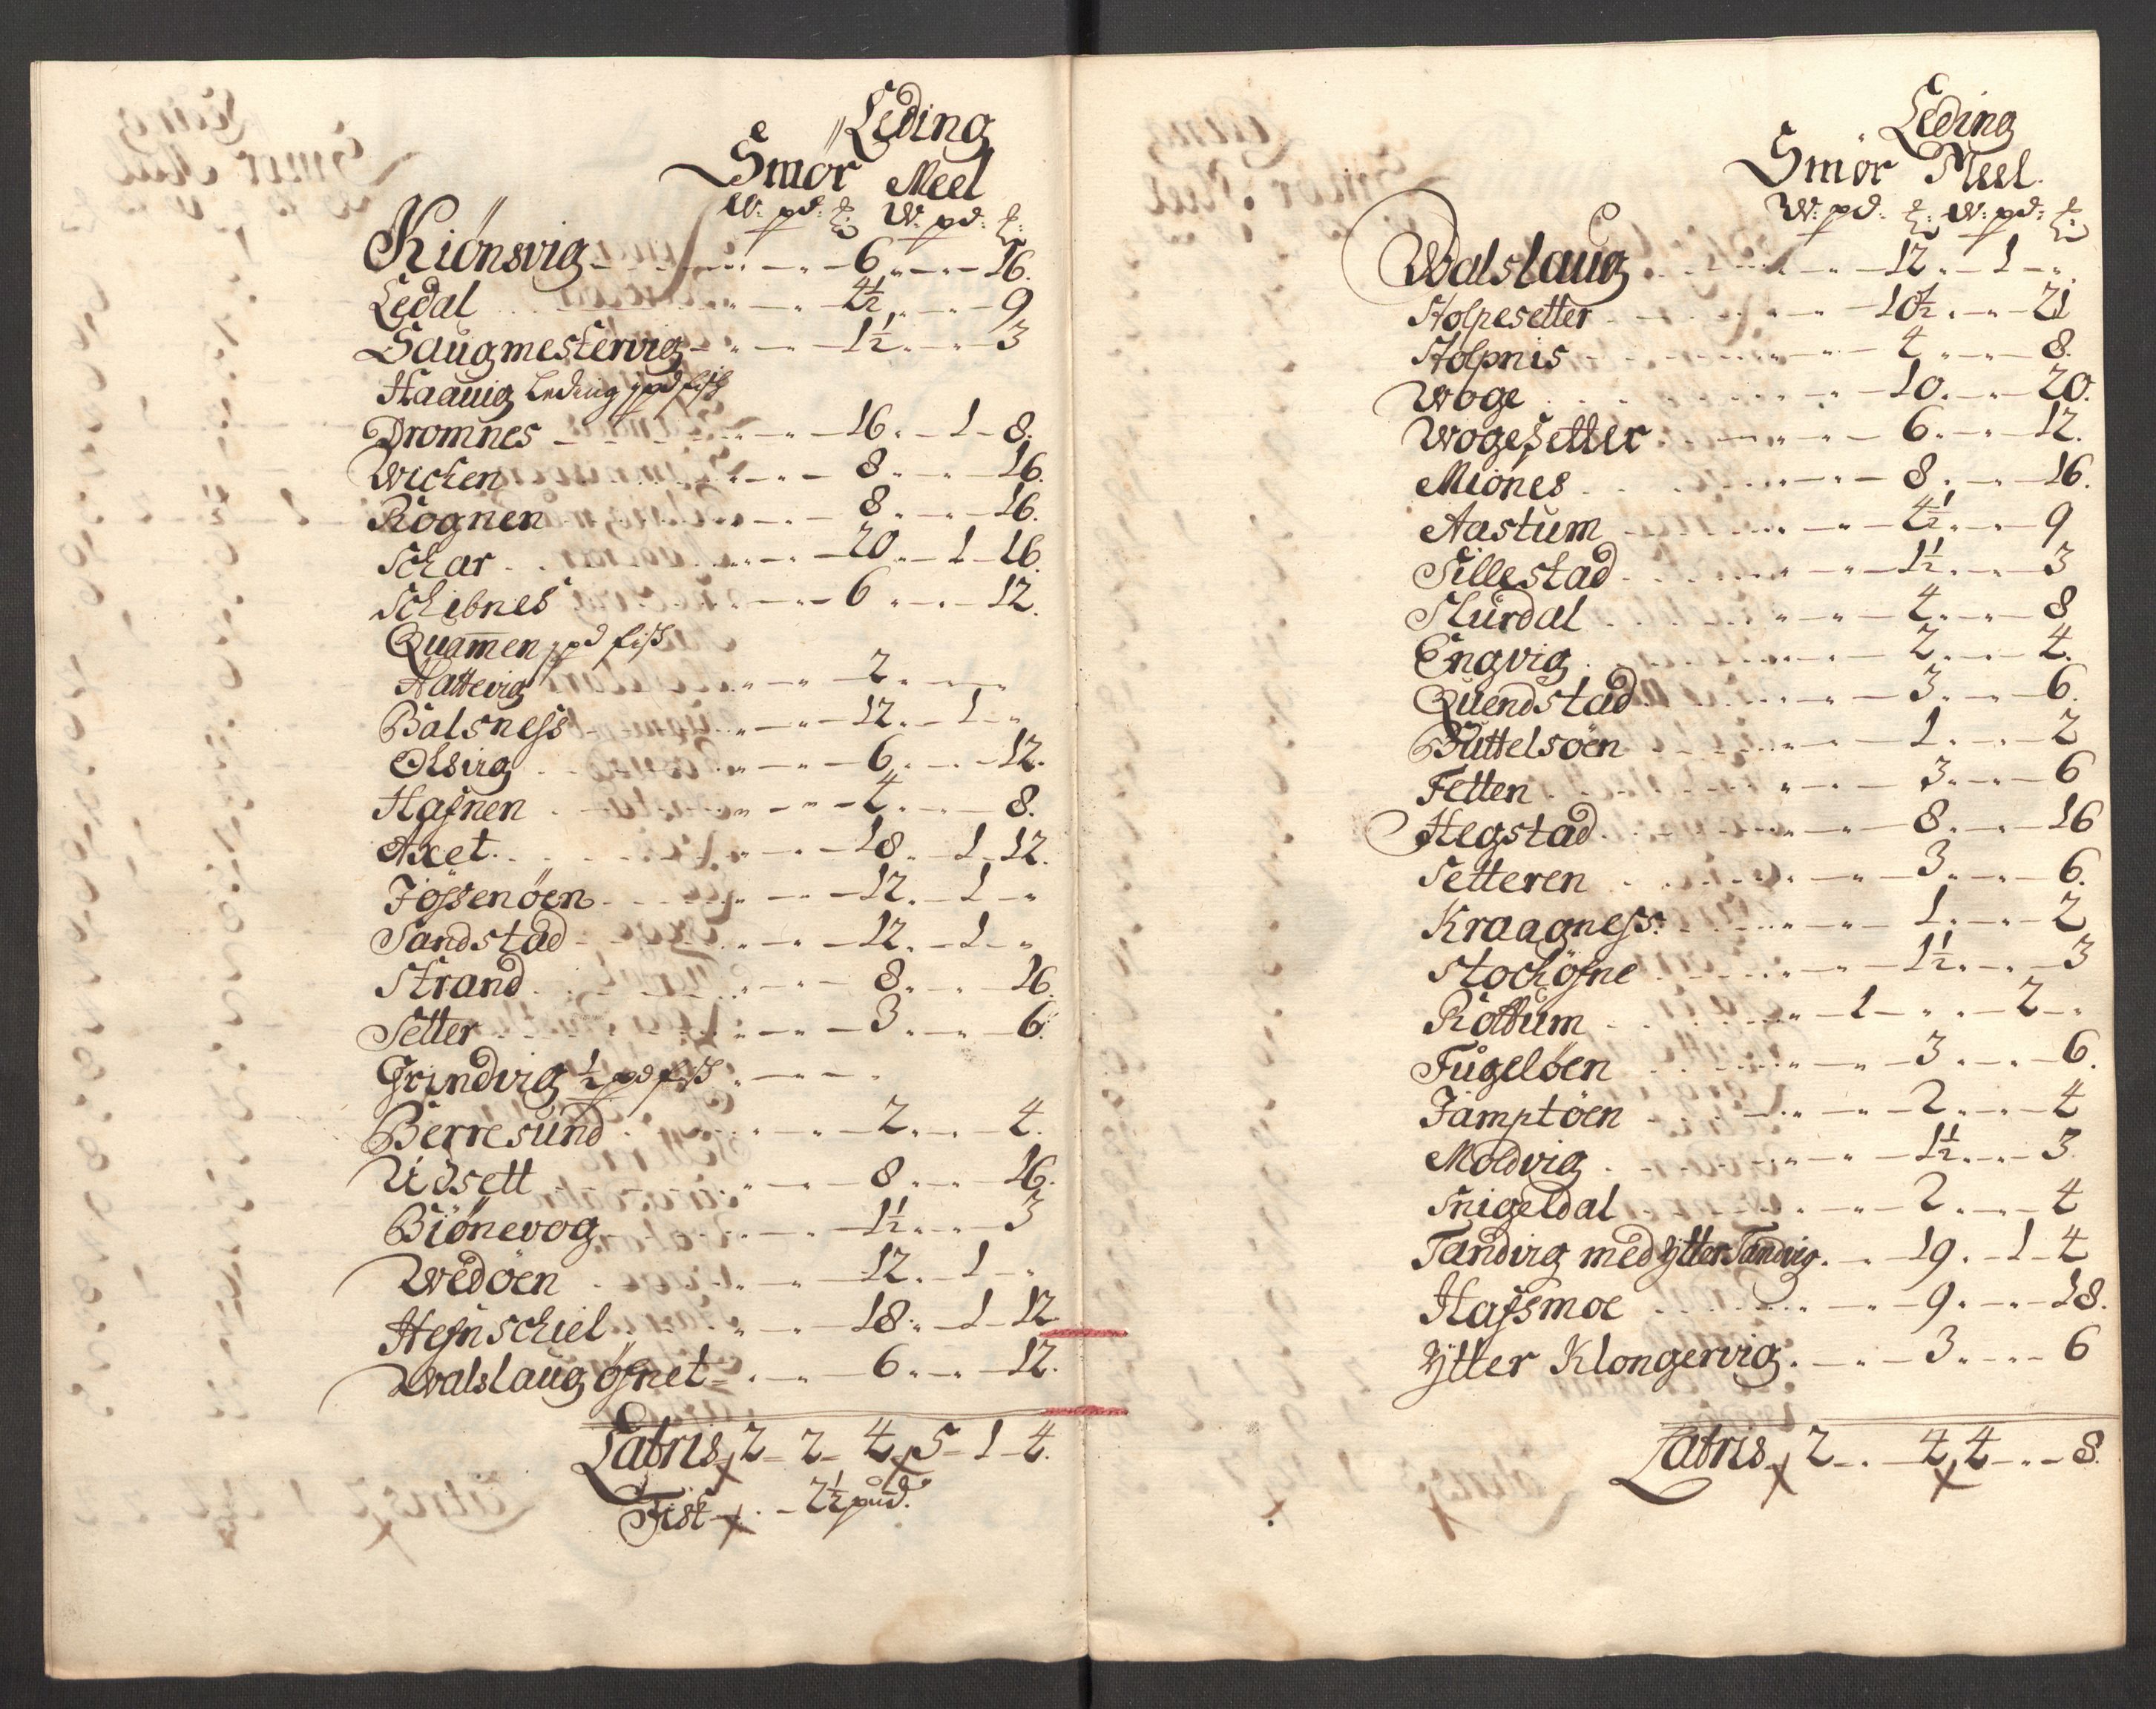 Leding
Smør Meel
W: pd: ℔: W: pd: ℔:
Kiønsvig - - - 6 - - 16.
Ledal - - - 4½ - - 9
Saugmestervig - - - 1½ - - 3
Haavig Leding 1 pd fisk
Dromnes - - - 16 - 1 - 8.
Wichen - - - 8 - - 16.
Rognen - - - 8 - - 16.
Schar - - - 20 - 1 - 16.
Schibnes - - - 6 - - 12.
Quamen 1 pd fisk
Hattevig - - - 2 - -
Balsness - - - 12 - 1 - "
Olsvig - - - 6 - - 12.
Hafnen - - - 4 - - 8.
Axet - - - 18 - 1 - 12.
Jøssenøen - - - 12 - 1 - "
Sandstad - - - 12 - 1 - "
Strand - - - 8 - - 16.
Setter - - - 3 - - 6.
Grindvig ½ pd fisk - - -
Berresund - - - 2 - - 4.
Udsett - - - 8 - - 16.
Biønevog - - - 1½ - - 3
Wedøen - - - 12 - 1 - "
Hefnschiel - - - 18 - 1 - 12
Walslaug øfnet - - - 6 - - 12.
Latris 2 - 2 - 4 5 - 1 - 4.
Fisk - - 2½ pund.
Leding
Smør Meel.
W: pd: ℔: W: pd: ℔
Walslaug - - - 12 - 1 - "
Holpesetter - - - 10½ - - 21
Holpnis - - - 4 - - 8.
Woge - - - 10 - - 20.
Wogesetter - - - 6 - - 12.
Miønes - - - 8 - - 16.
Aastum - - - 4½ - - 9
Sillestad - - - 1½ - - 3
Slurdal - - - 4 - - 8
Engvig - - - 2 - - 4.
Quendstad - - - 3 - - 6.
Buttelsøen - - - 1 - - 2
Fetten - - - 3 - - 6
Hegstad - - - 8 - - 16
Setteren - - - 3 - - 6.
Kraagness: - - - 1 - - 2
Stochøfne - - - 1½ - - 3
Rottum - - 1 - - - 2 - "
Fugeløen - - - 3 - - 6.
Jamptøen - - - 2 - - 4
Moldvig - - - 1½ - - 3.
Snigeldal - - - 2 - - 4
Tandvig med Ytter Tandvig - - 19 - 1 - 4
Hafsmoe - - - 9 - - 18.
Ytter Klongervig - - - 3 - - 6
Latris 2 - - 4 4 - - 8.